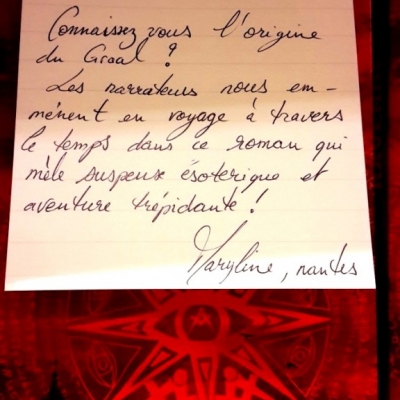 Connaissez vous l'origine
du Graal ?
Les narrateurs nous em-
mènent en voyage à travers
le temps dans ce roman qui
mêle suspense ésoterique et
aventure trépidante !
Maryline, nantes